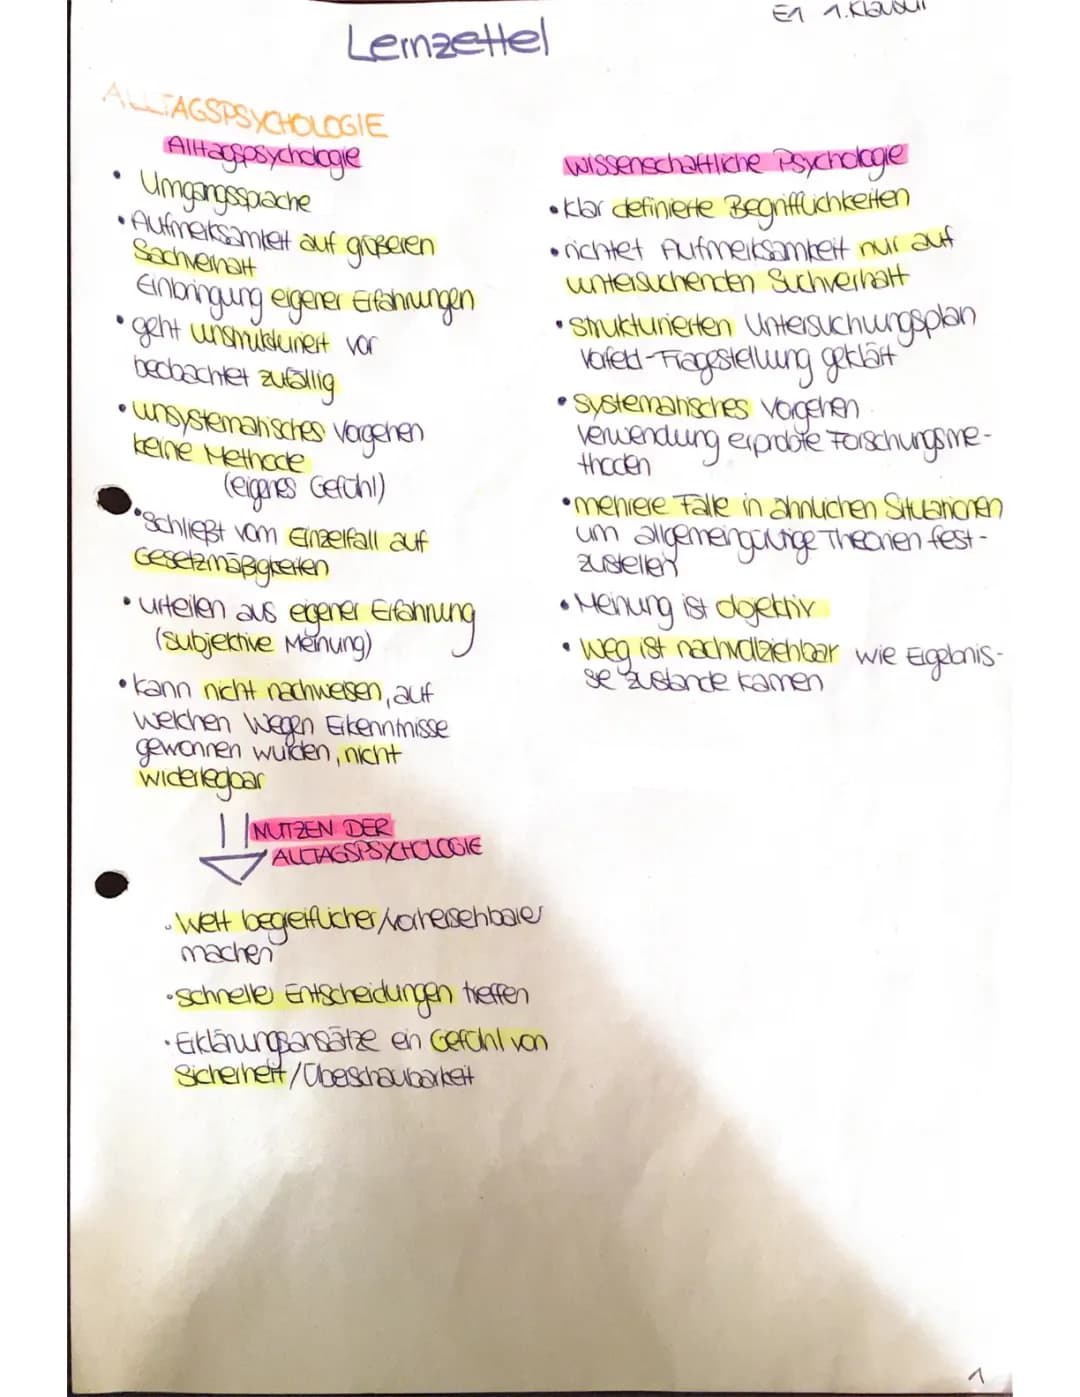 E1 1. Klausur
Lernzettel
ALLTAGSPSYCHOLOGIE
Alltagspsychologie
• Umgangssprache
• Aufmerksamkeit auf größeren
Sachverhalt
Einbringung eigener Erfahrungen
• geht unstrukturiert vor
beobachtet zufällig
• unsystematisches Vorgehen
keine Methode
(eigenes Gefühl)
• Schließt vom Einzelfall auf
Gesetzmäßigkeiten
• urteilen aus eigener Erfahrung
(subjektive Meinung)
• kann nicht nachweisen, auf
welchen Wegen Erkenntnisse
gewonnen wurden, nicht
widerlegbar
NUTZEN DER
ALLTAGSPSYCHOLOGIE
• Welt begreiflicher/vorhersehbarer
machen
• schnelle Entscheidungen treffen
• Erklärungsansätze ein Gefühl von
Sicherheit/Überschaubarkeit
wissenschaftliche Psychologie
• klar definierte Begrifflichkeiten
• richtet Aufmerksamkeit nur auf
untersuchenden Suchverhalt
• strukturierten Untersuchungsplan
Vorfeld-Fragestellung geklärt
• systematisches Vorgehen
Verwendung erprobte Forschungsme-
thoden
• mehrere Fälle in ähnlichen Situationen
um allgemeingültige Theorien fest-
zustellen
• Meinung ist objektiv
• Weg ist nachvollziehbar wie Ergebnis-
se zustande kamen
1